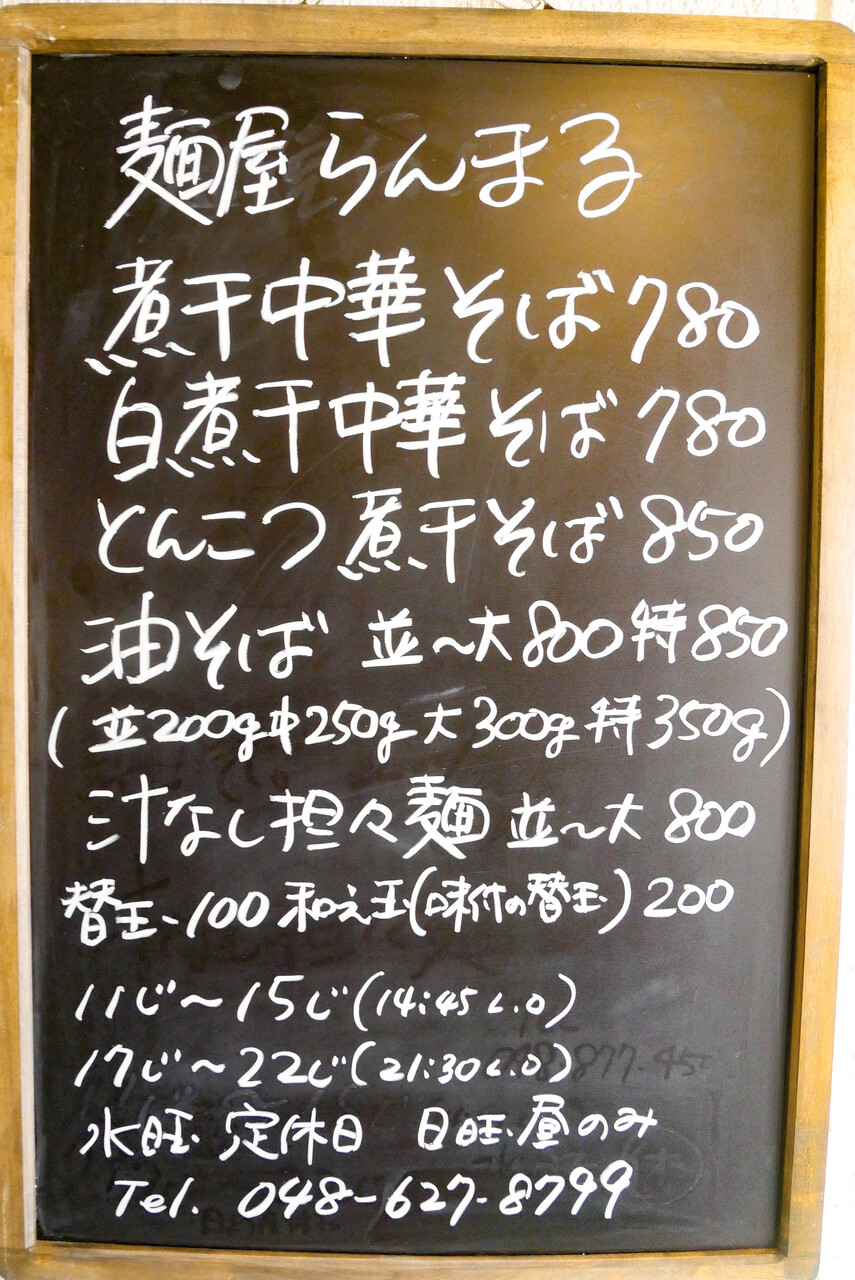 麺屋らんまる
煮干中華そば780
白煮干中華そば780
とんこつ煮干そば850
油そば 並～大800特850
(並200g中250g大300g特350g)
汁なし担々麺 並～大 800
替玉、100和え玉(味付の替玉)200
11じ～15じ(14:45 L.O)
17じ～22じ(21:30 L.O)
水旺 定休日 日旺昼のみ
Tel. 048-627-8799